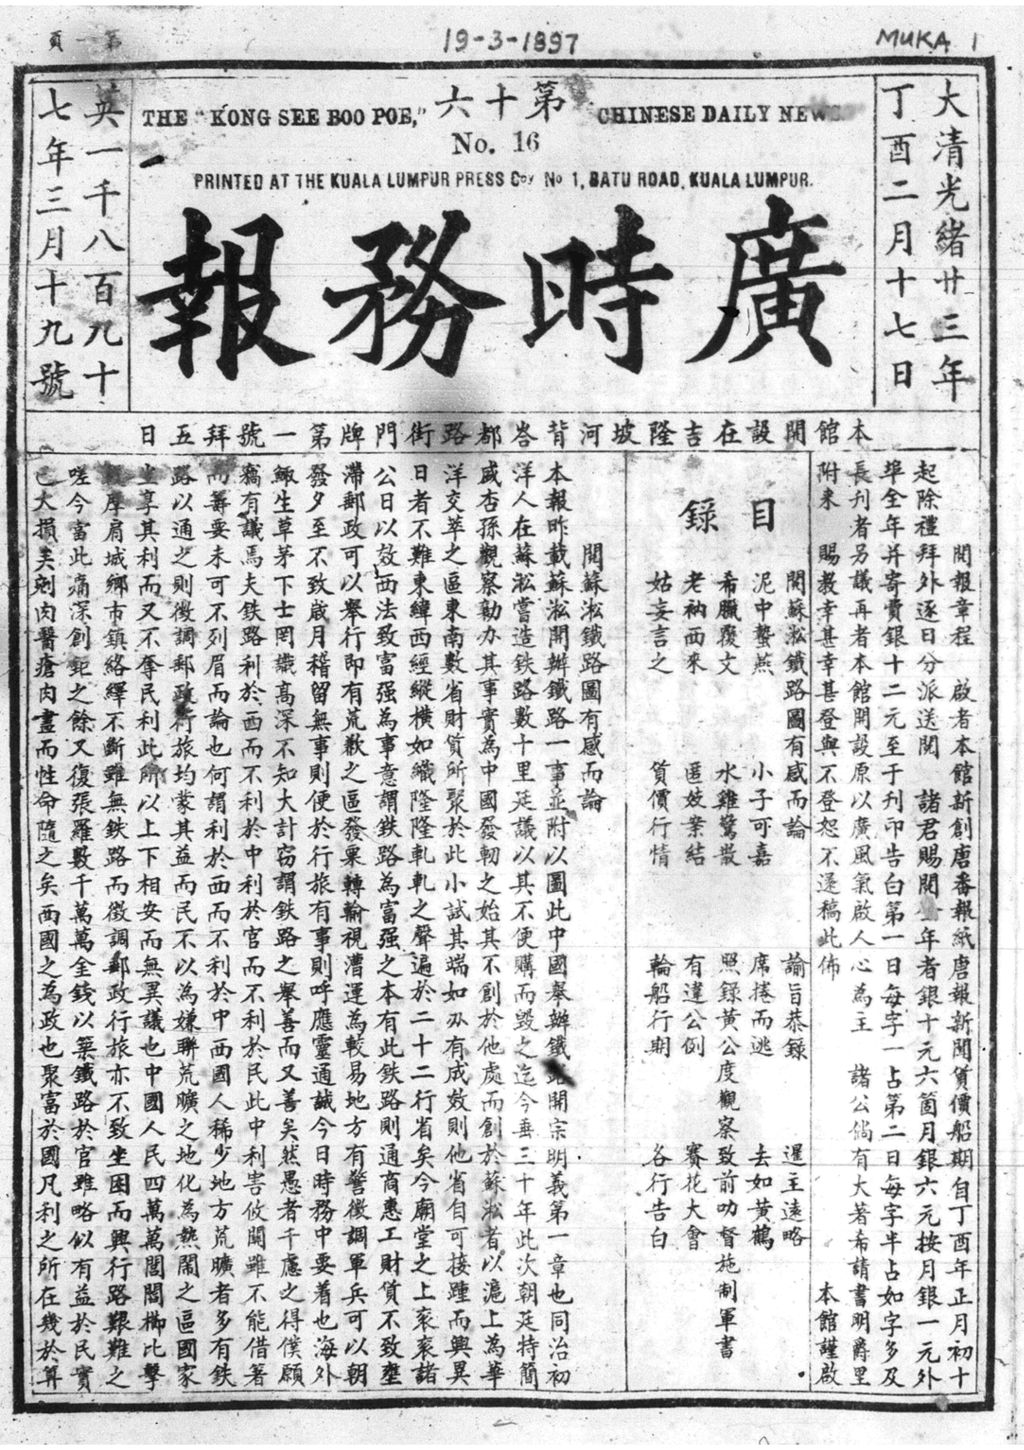 第一頁
19-3-1897
MUKA 1
大清光緒廿三年
丁酉二月十七日
第十六
THE "KONG SEE BOO POE," CHINESE DAILY NEWS.
No. 16
PRINTED AT THE KUALA LUMPUR PRESS Coy No 1, BATU ROAD, KUALA LUMPUR.
廣時務報
英一千八百九十
七年三月十九號
本館開設在吉隆坡河背峇都路街門牌第一號拜五日
開報章程 啟者本館新創唐番報紙唐報新聞貨價船期自丁酉年正月初十
起除禮拜外逐日分派送閱 諸君賜閱 年者銀十元六箇月銀六元按月銀一元外
埠全年并寄費銀十二元至于刊印告白第一日每字一占第二日每字半占如字多及
長刊者另議再者本館開設原以廣風氣啟人心為主 諸公倘有大著希請書明爵里
附來 賜教幸甚幸甚登與不登恕不還稿此佈 本館謹啟
目錄
開蘇淞鐵路圖有感而論 諭旨恭錄 暹主遠略
泥中螫燕 小子可嘉 席捲而逃 去如黃鶴
希臘覆文 水雞驚散 照錄黃公度觀察致前叻督施制軍書
老衲西來 匿妓案結 有違公例 賽花大會
姑妄言之 貨價行情 輪船行期 各行告白
開蘇淞鐵路圖有感而論
本報昨載蘇淞開辦鐵路一事並附以圖此中國舉辦鐵路開宗明義第一章也同治初
洋人在蘇淞嘗造鉄路數十里廷議以其不便購而毀之迄今垂三十年此次朝廷特簡
盛杏孫觀察勷办其事實為中國發軔之始其不創於他處而創於蘇淞者以滬上為華
洋交萃之區東南數省財貨所聚於此小試其端如办有成效則他省自可接踵而興異
日者不難東緯西經縱橫如織隆隆軋軋之聲遍於二十二行省矣今廟堂之上衮衮諸
公日以效西法致富强為事意謂鉄路為富强之本有此鉄路則通商惠工財貨不致壅
滯郵政可以舉行即有荒歉之區發粟轉輸視漕運為較易地方有警徵調軍兵可以朝
發夕至不致歲月稽留無事則便於行旅有事則呼應靈通誠今日時務中要着也海外
鯫生草茅下士罔識高深不知大計窃謂鉄路之舉善而又善矣然愚者千慮之得僕願
竊有議焉夫鉄路利於西而不利於中利於官而不利於民此中利害攸關雖不能借箸
而籌要未可不列眉而論也何謂利於西而不利於中西國人稀少地方荒曠者多有鉄
路以通之則徵調郵政行旅均蒙其益而民不以為嫌聯荒曠之地化為熱鬧之區國家
坐享其利而又不奪民利此所以上下相安而無異議也中國人民四萬萬閭閻櫛比擊
轂摩肩城鄉市鎮絡繹不斷雖無鉄路而徵調郵政行旅亦不致坐困而興行路艱難之
嗟今當此痛深創鉅之餘又復張羅數千萬萬金錢以築鐵路於官雖略似有益於民實
已大損矣剜肉醫瘡肉盡而性命隨之矣西國之為政也聚富於國凡利之所在幾於算